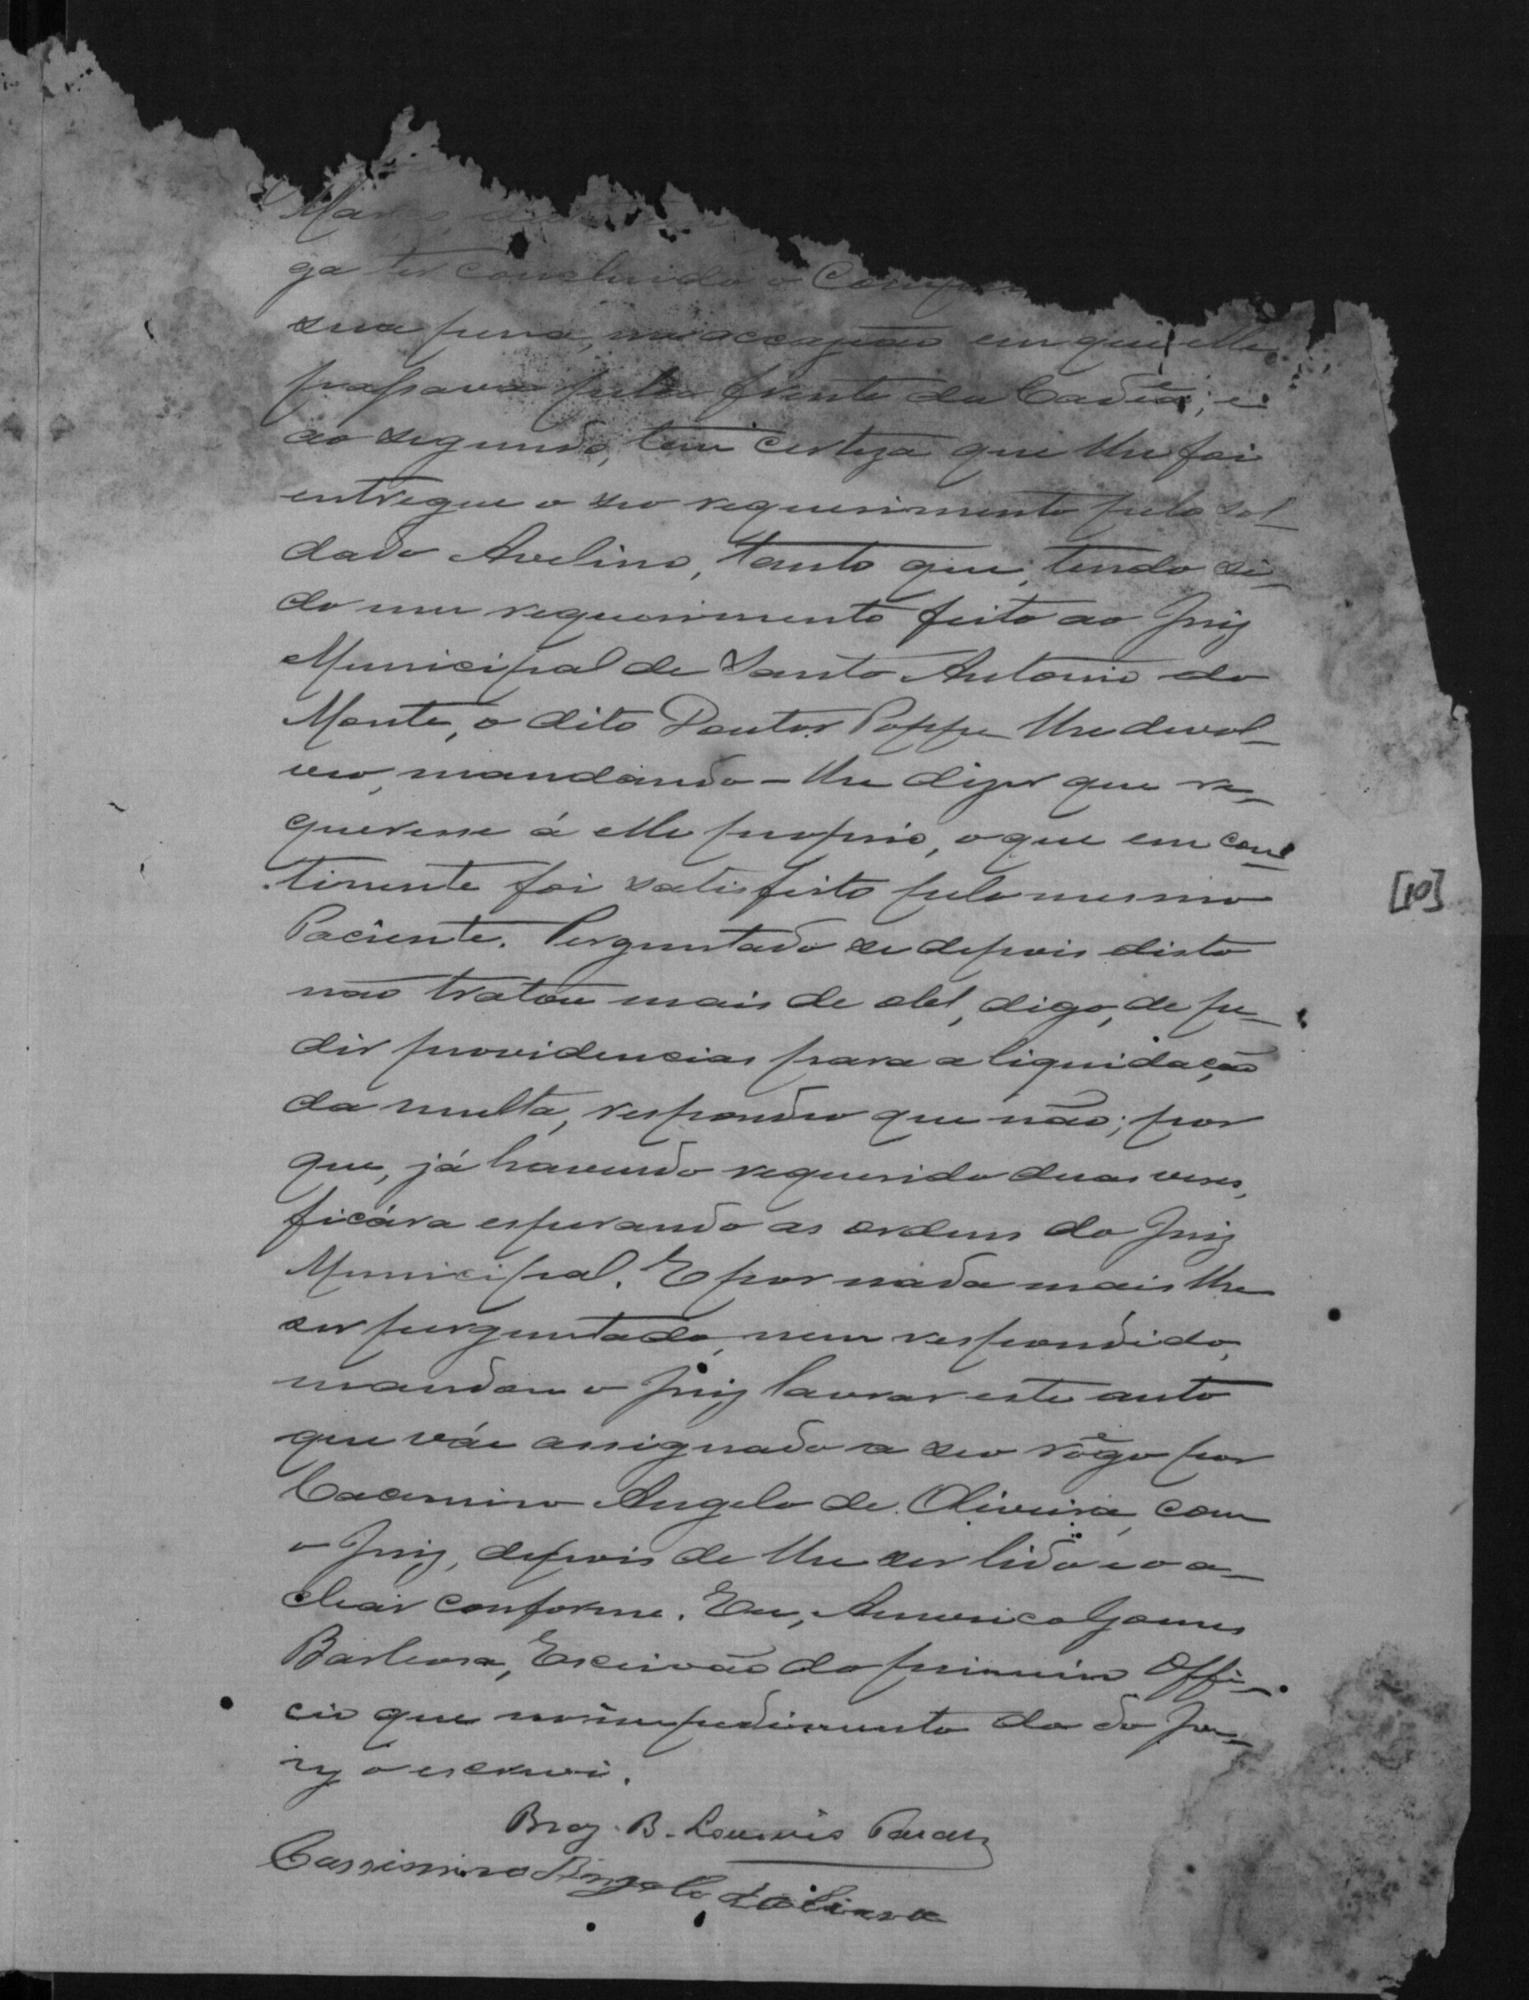 ga ter concluido o
sua pena, na occazião em que elle
passava pela frente da Cadêa; e
ao segundo, tem certeza que lhe foi
entregue o seo requerimento pelo sol-
dado Avelino, tanto que, tendo si-
do um requerimento feito ao Juiz
Municipal de Santo Antonio do
Monte, o dito Doutor Poppe lhe devol-
veo, mandando-lhe dizer que re-
queresse á elle proprio, o que em con-
tinente foi satisfeito pelo mesmo
Paciente. Perguntado se depois disto
não tratou mais de obt, digo, de pe-
dir providencias para a liquidação
da multa, respondeo que não; por
que, já havendo requerido duas veses,
ficára esperando as ordens do Juiz
Municipal. E por nada mais lhe
ser perguntado, nem respondido,
mandou o Juiz lavrar este auto
que váe assignado a seo rôgo por
Cacemiro Angelo de Oliveira, com
o Juiz, depois de lhe ser lido e o a-
char conforme. Eu, Americo Gomes
Barbosa, Escrivão do primeiro Offi-
cio que no impedimento do do Ju-
ry o escrevi.
Braz. B.
Cassimiro Angelo d'Oliveira
[10]